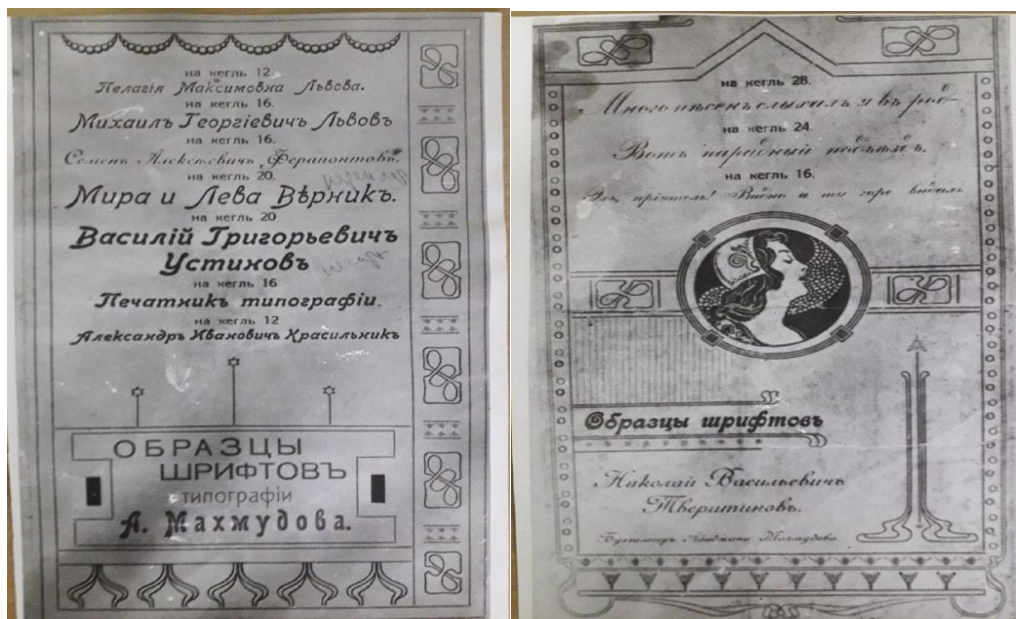 на кегль 12.
Пелагія Максимовна Львова.
на кегль 16.
Михаилъ Георгіевичъ Львовъ
на кегль 16.
Семенъ Алексѣевичъ Ферапонтовъ.
на кегль 20.
Мира и Лева Вѣрникъ.
на кегль 20
Василій Григорьевичъ
Устиновъ
на кегль 16
Печатникъ типографіи.
на кегль 12
Александръ Ивановичъ Красильникъ
ОБРАЗЦЫ
ШРИФТОВЪ
типографіи
А. Махмудова.
на кегль 28.
Много пѣсенъ слыхалъ я въ род-
на кегль 24.
Вотъ парадный подъѣздъ.
на кегль 16.
Эхъ, пріятель! Видно и ты горе видалъ
Образцы шрифтовъ
Николай Васильевичъ
Тверитиновъ.
Махмудова